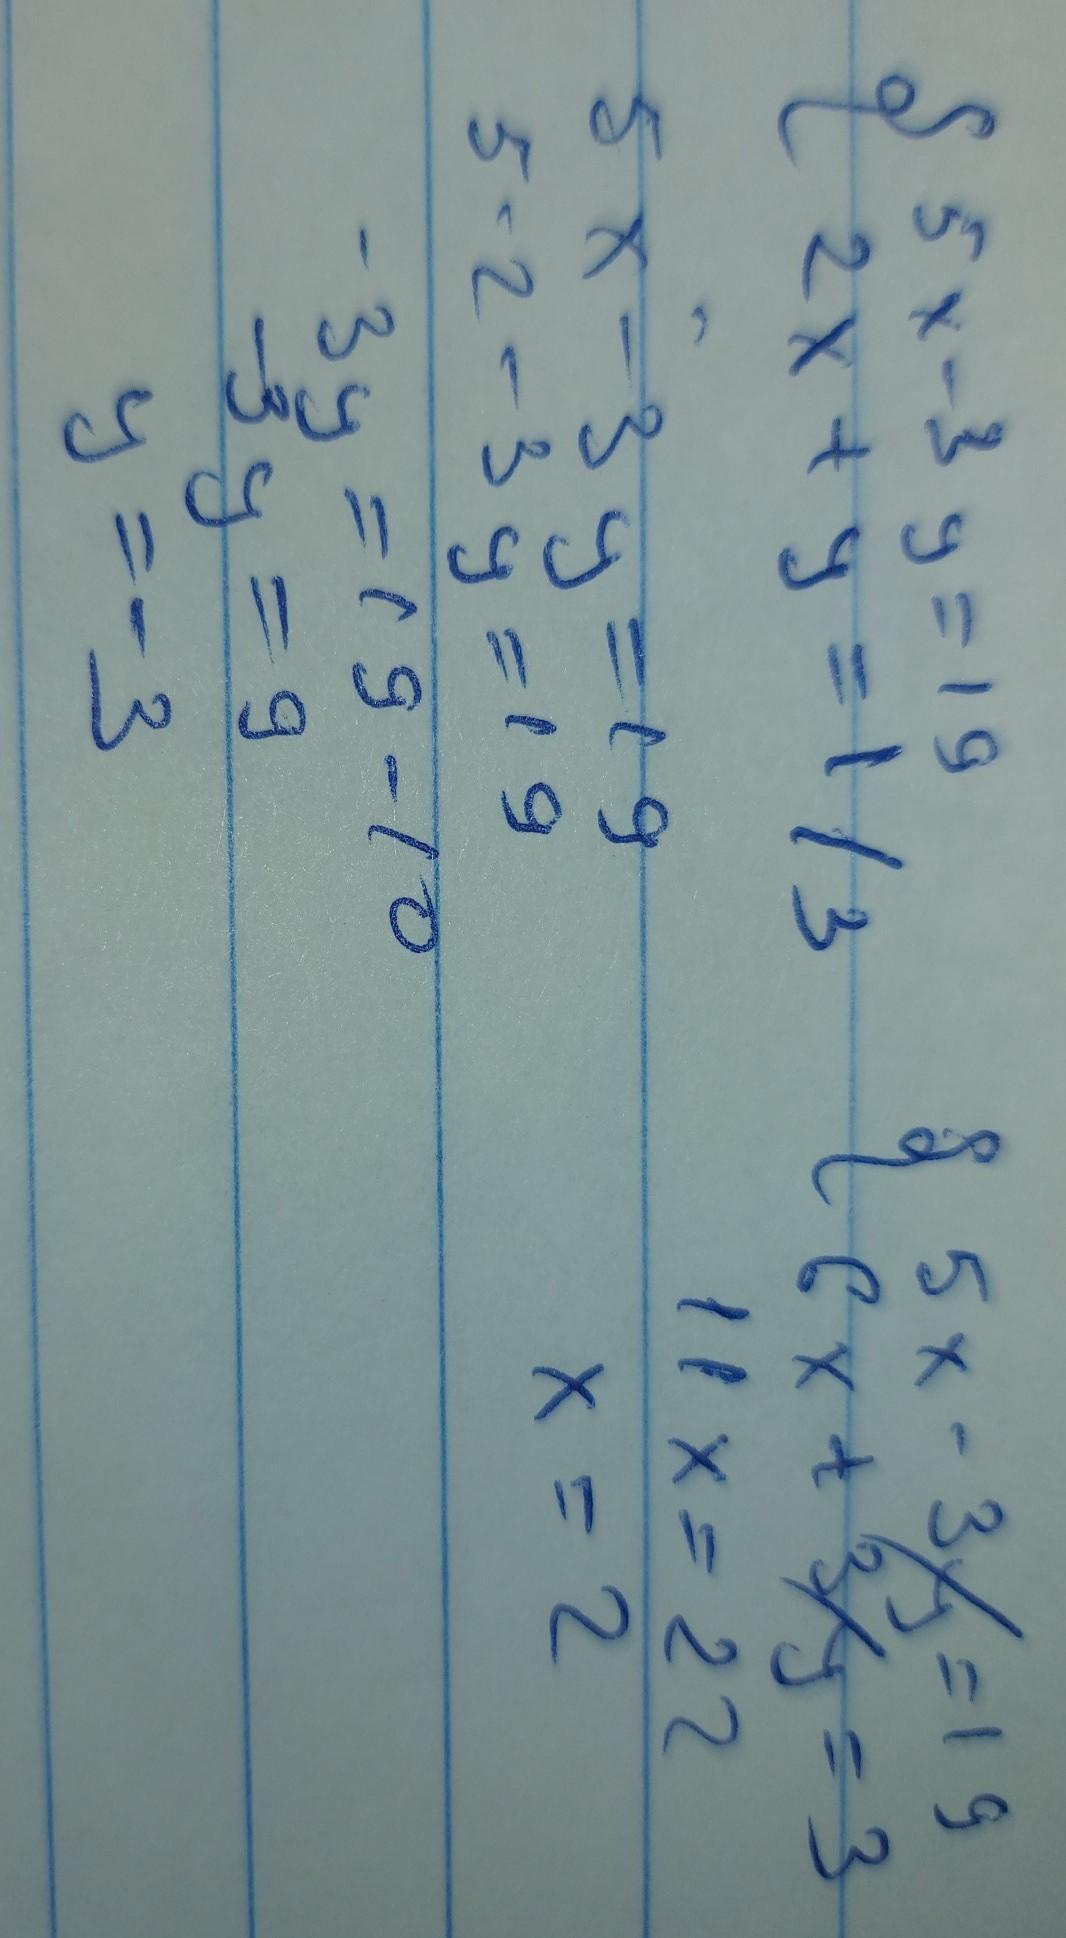 { 5x-3y=19
2x+y=1/3
{ 5x-3y=19
6x+3y=3
11x=22
x=2
5x-3y=19
5·2-3y=19
-3y=19-10
-3y=9
y=-3